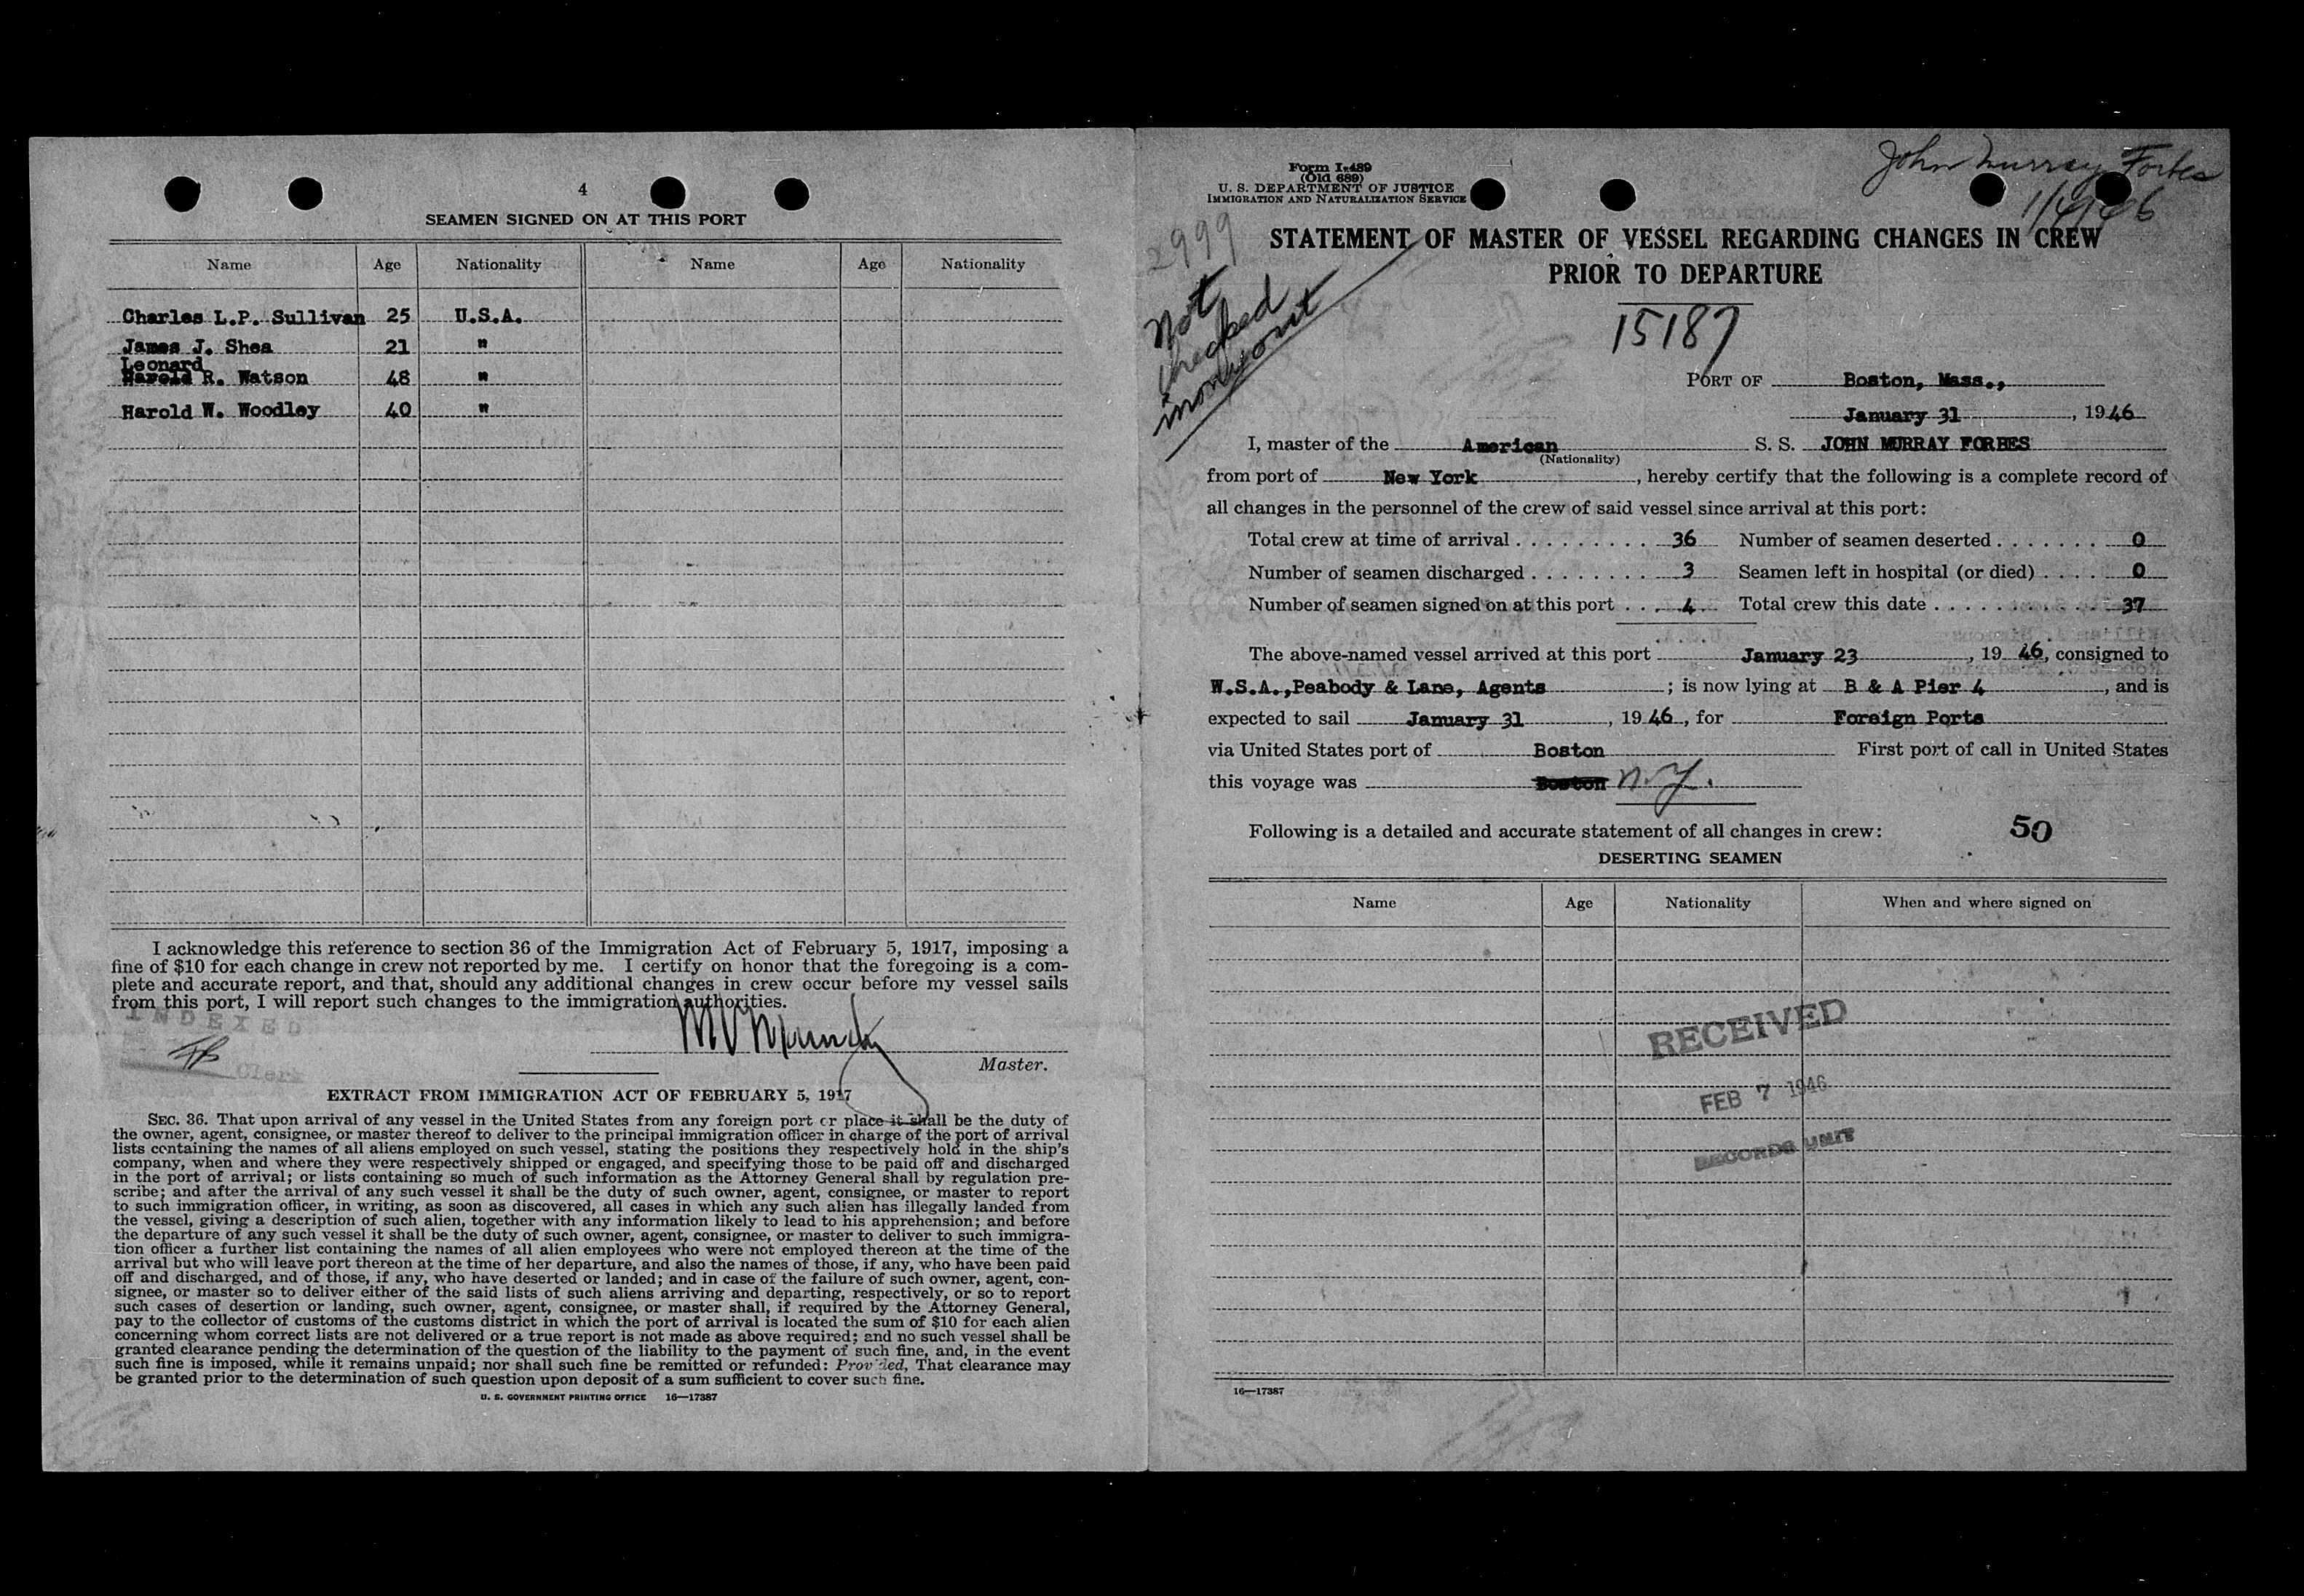 4
SEAMEN SIGNED ON AT THIS PORT
Name Age Nationality Name Age Nationality
Charles L.P. Sullivan 25 U.S.A.
James J. Shea 21 "
Leonard
Harold R. Watson 48 "
Harold W. Woodley 40 "
I acknowledge this reference to section 36 of the Immigration Act of February 5, 1917, imposing a
fine of $10 for each change in crew not reported by me. I certify on honor that the foregoing is a com-
plete and accurate report, and that, should any additional changes in crew occur before my vessel sails
from this port, I will report such changes to the immigration authorities.
INDEXED
Clerk
Master.
EXTRACT FROM IMMIGRATION ACT OF FEBRUARY 5, 1917
SEC. 36. That upon arrival of any vessel in the United States from any foreign port or place it shall be the duty of
the owner, agent, consignee, or master thereof to deliver to the principal immigration officer in charge of the port of arrival
lists containing the names of all aliens employed on such vessel, stating the positions they respectively hold in the ship's
company, when and where they were respectively shipped or engaged, and specifying those to be paid off and discharged
in the port of arrival; or lists containing so much of such information as the Attorney General shall by regulation pre-
scribe; and after the arrival of any such vessel it shall be the duty of such owner, agent, consignee, or master to report
to such immigration officer, in writing, as soon as discovered, all cases in which any such alien has illegally landed from
the vessel, giving a description of such alien, together with any information likely to lead to his apprehension; and before
the departure of any such vessel it shall be the duty of such owner, agent, consignee, or master to deliver to such immigra-
tion officer a further list containing the names of all alien employees who were not employed thereon at the time of the
arrival but who will leave port thereon at the time of her departure, and also the names of those, if any, who have been paid
off and discharged, and of those, if any, who have deserted or landed; and in case of the failure of such owner, agent, con-
signee, or master so to deliver either of the said lists of such aliens arriving and departing, respectively, or so to report
such cases of desertion or landing, such owner, agent, consignee, or master shall, if required by the Attorney General,
pay to the collector of customs of the customs district in which the port of arrival is located the sum of $10 for each alien
concerning whom correct lists are not delivered or a true report is not made as above required; and no such vessel shall be
granted clearance pending the determination of the question of the liability to the payment of such fine, and, in the event
such fine is imposed, while it remains unpaid; nor shall such fine be remitted or refunded: Provided, That clearance may
be granted prior to the determination of such question upon deposit of a sum sufficient to cover such fine.
U. S. GOVERNMENT PRINTING OFFICE 16—17387
Form I-489
(Old 689)
U. S. DEPARTMENT OF JUSTICE
IMMIGRATION AND NATURALIZATION SERVICE
John Murray Forbes
2999
STATEMENT OF MASTER OF VESSEL REGARDING CHANGES IN CREW
PRIOR TO DEPARTURE
Not
checked
15187
PORT OF Boston, Mass.,
January 31, 1946
I, master of the American S. S. JOHN MURRAY FORBES
(Nationality)
from port of New York, hereby certify that the following is a complete record of
all changes in the personnel of the crew of said vessel since arrival at this port:
Total crew at time of arrival 36 Number of seamen deserted 0
Number of seamen discharged 3 Seamen left in hospital (or died) 0
Number of seamen signed on at this port 4 Total crew this date 37
The above-named vessel arrived at this port January 23, 1946, consigned to
W.S.A.,Peabody & Lane, Agents; is now lying at B & A Pier 4, and is
expected to sail January 31, 1946, for Foreign Ports
via United States port of Boston First port of call in United States
this voyage was Boston N.Y.
Following is a detailed and accurate statement of all changes in crew: 50
DESERTING SEAMEN
Name Age Nationality When and where signed on
RECEIVED
FEB 7 1946
RECORDS UNIT
16—17387